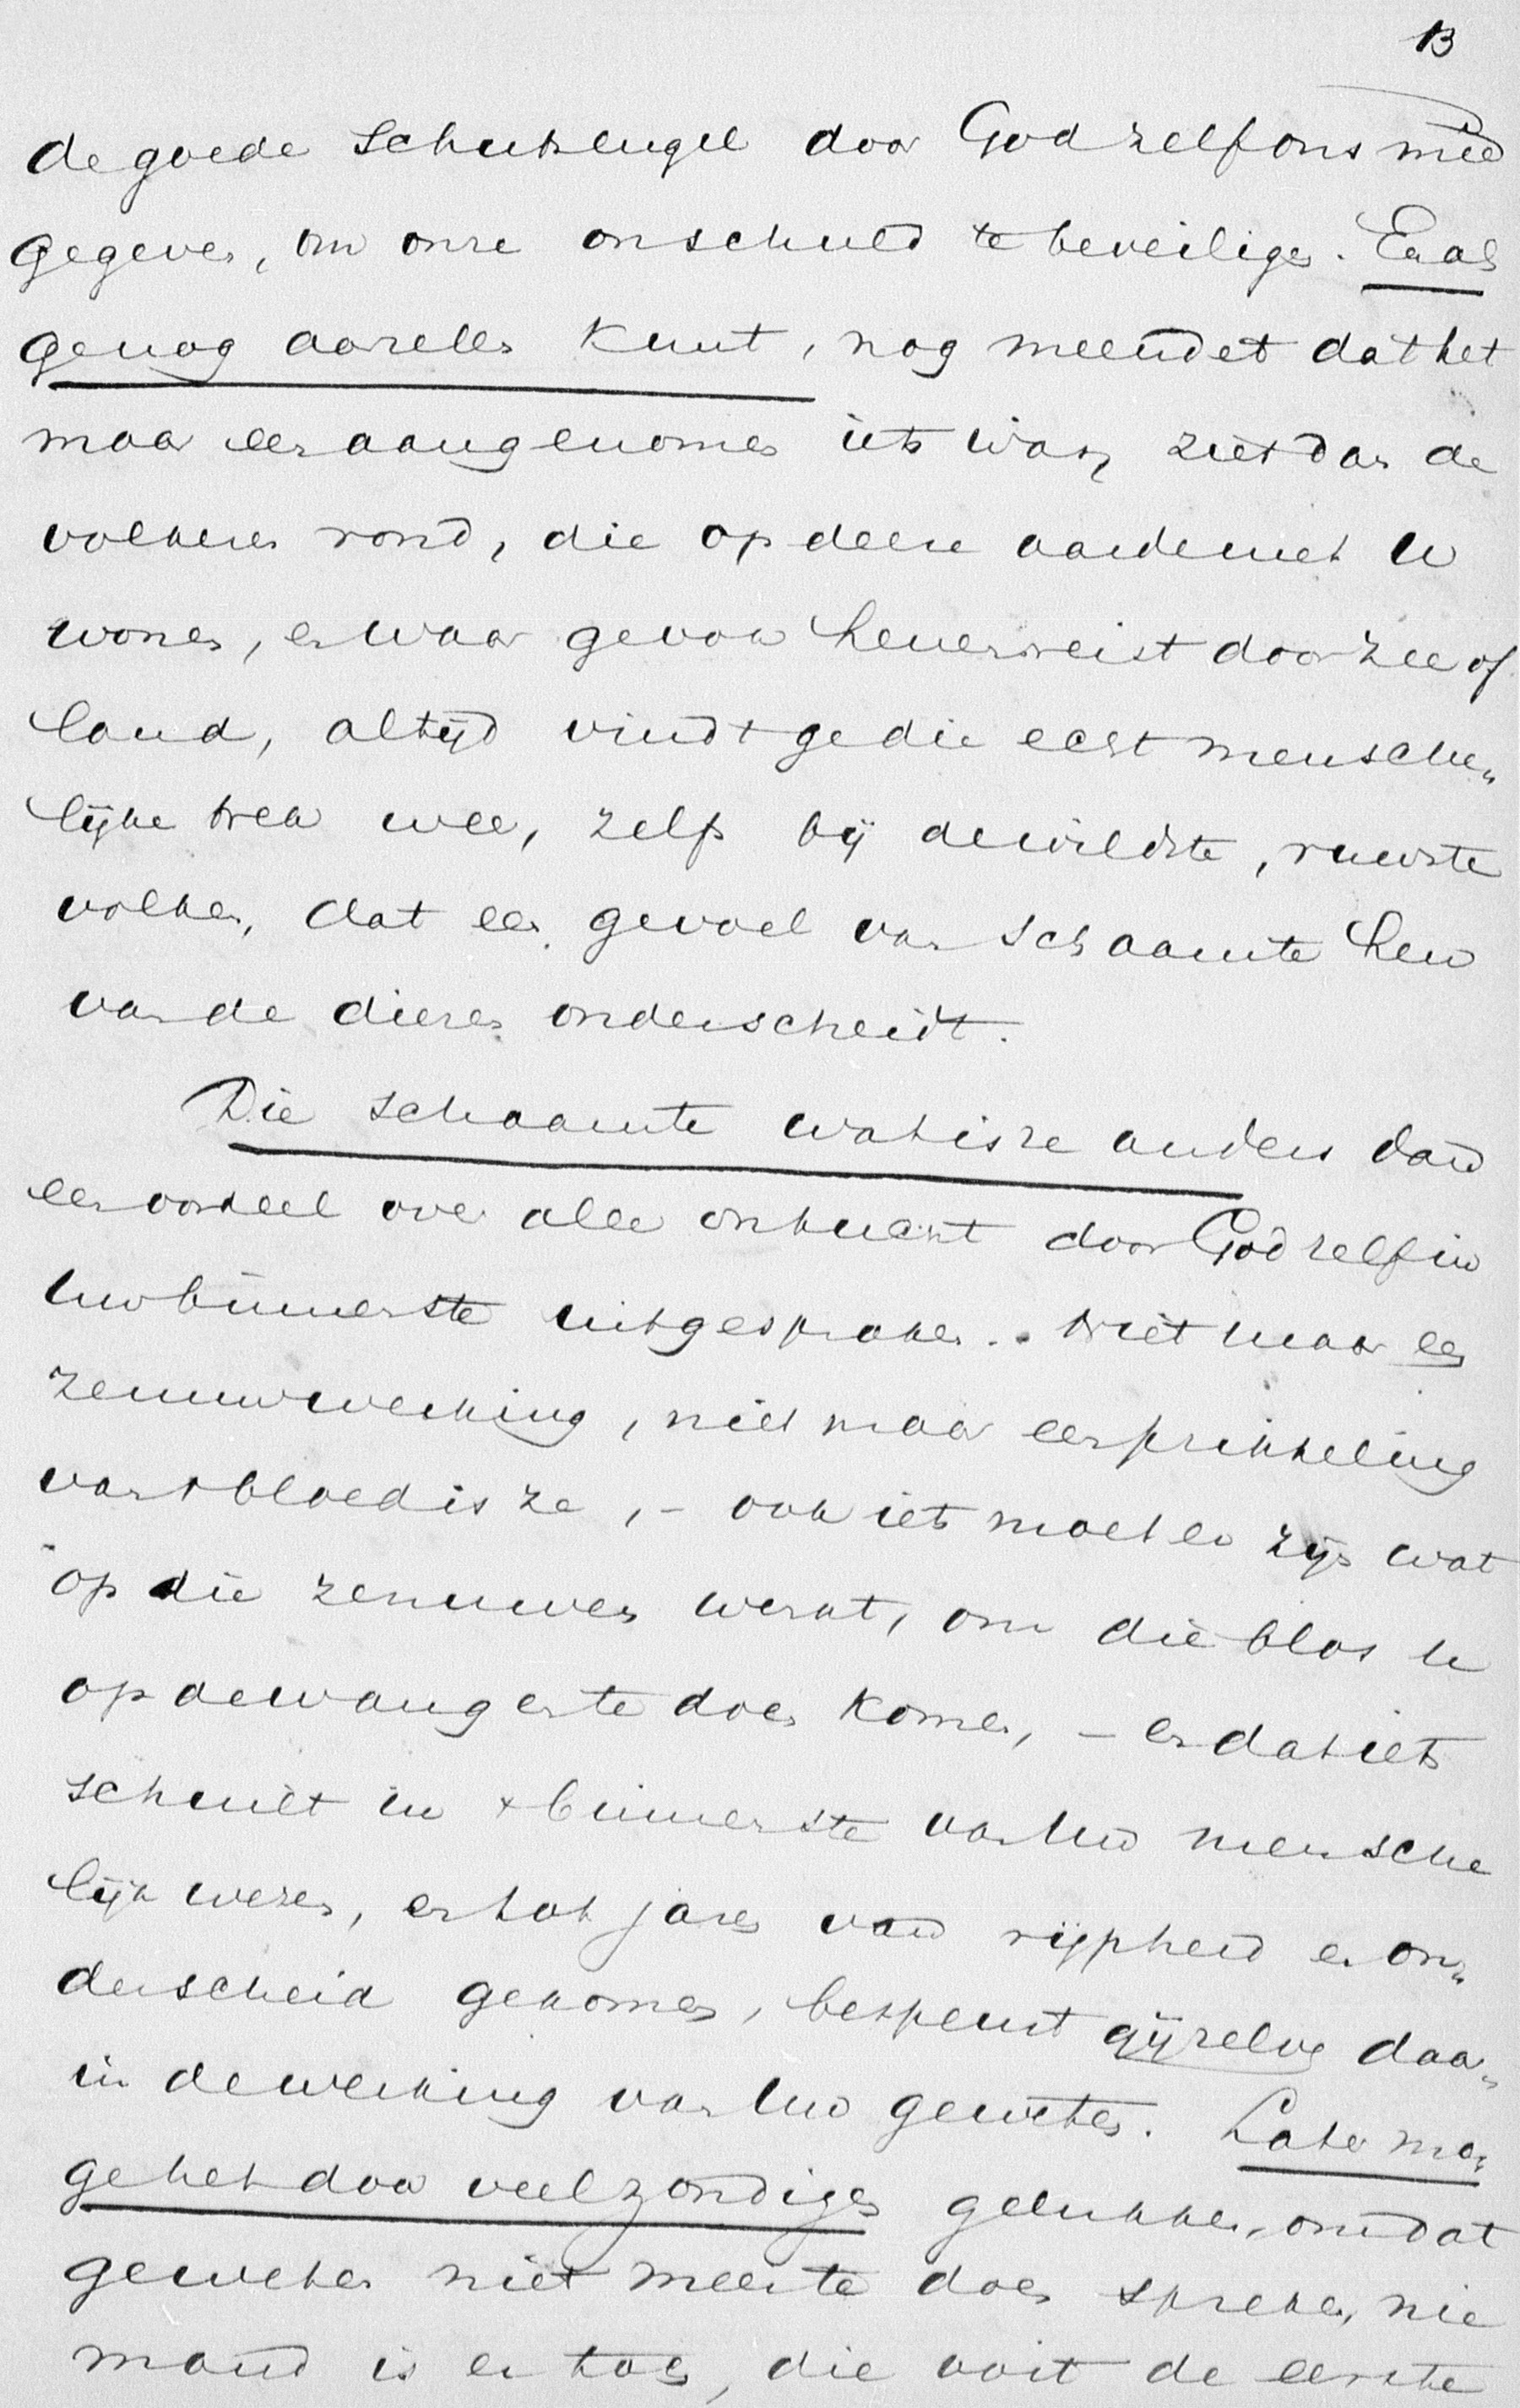 13
de goede Schutsengel door God zelf ons mêe
gegeven, om onze onschuld te beveiligen. En als
ge nog aarzelen kunt, nog meendet dat het
maar een aangenomen iets was, ziet dan de
volkeren rond, die op deze aarde met U
wonen, en waar ge ook henenreist door zee of
land, altijd vindt ge die echt mensche„
lijke trek weer, zelfs bij de wildste, ruwste
volken, dat een gevoel van schaamte hen
van de dieren onderscheidt.
Die schaamte wat is ze anders dan
een oordeel over alle ontucht door God zelf in
Uw binnenste uitgesproken. Niet maar een
zenuwwerking, niet maar een prikkeling
van 't bloed is ze, – ook iets moet er zijn wat
op die zenuwen werkt, om die blos U
op de wangen te doen komen, – en dat iets
schuilt in 't binnenste van Uw mensche
lijk wezen, en tot jaren van rijpheid en on„
derscheid gekomen, bespeurt gij zelve daar„
in de werking van Uw geweten. Later mog
ge het door veel zondigen gelukken, om dat
geweten niet meer te doen spreken, nie
mand is er toch, die ooit de eerste